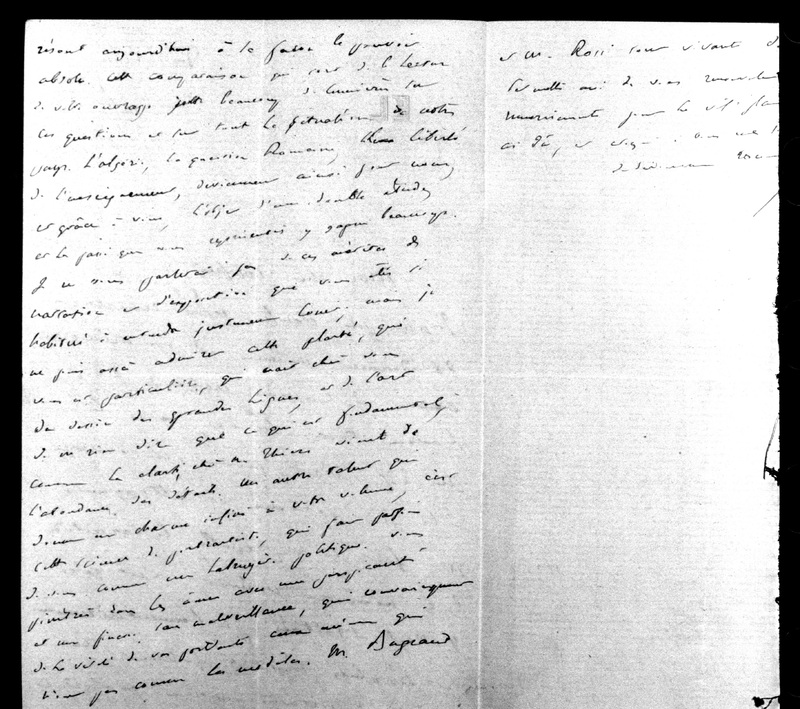 résout aujourd'hui à la façon le pouvoir
absolu. Cette comparaison qui sort de la lecture
de votre ouvrage jette beaucoup de lumière sur
ces questions et sur tout le de notre
pays. L'algérie, la question Romaine, liberté
de l'enseignement, deviennent ainsi pour nous,
et grâce à vous, l'objet d'une double étude,
et la passé que vous y gagne beaucoup.
Je ne vous parlerai pas de ces mérites de
narration et d'exposition que vous êtes si
habitué à entendre justement louer; mais je
ne puis assez admirer cette clarté, qui
vous est particulière, qui naît chez vous
du dessin des grandes lignes, et de l'art
de ne rien dire que ce qui est fondamental,
comme la clarté chez M. Thiers vient de
l'abondance des détails. Un autre talent qui
donne un charme infini à votre volume, c'est
cette science de portraits, qui fait
de vous comme un Labruyère politique. Vous
pénétrez dans les âmes avec une perspicacité
et une finesse sans malveillance, qui convainquent
de la vérité de vos portraits ceux même qui
n'ont pas connu les modèles. M. Bugeaud
et M. Rossi sont vivants
de vous
remerciements pour le